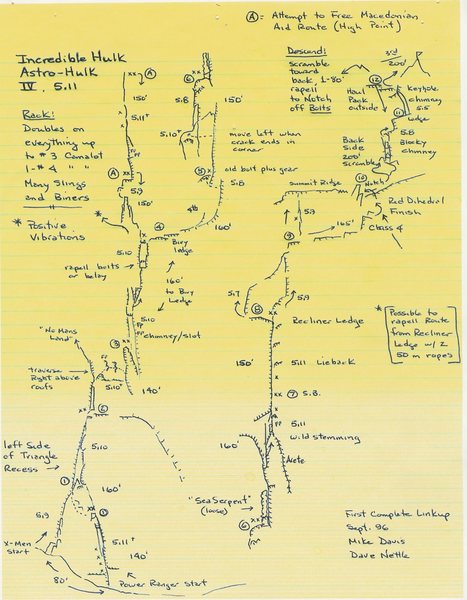 Ⓐ = Attempt to Free Macedonian
Aid Route (High Point)
Incredible Hulk
Astro-Hulk
IV 5.11
Rack:
Doubles on
everything up
to #3 Camalot
1-#4 " "
Many Slings
and Biners
* Positive
Vibrations
XX
A
150'
5.11+
A
XX
5.9
150'
4
Bivy
ledge
5.10
rapell bolts
or belay
160'
to Bivy
Ledge
5.10
chimney/slot
3
5.10+
140'
"No Mans
Land"
traverse
Right above
roofs
XX
2
left Side
of Triangle
Recess
5.10
1
160'
1
5.9
X-Men
Start
5.11+
140'
80'
Power Ranger Start
6
XX
5.8
150'
5.10+
move left when
crack ends in
corner
old bolt plus gear
5
5.8
4th
160'
Descend:
scramble
toward
back 1-80'
rapell
to Notch
off Bolts
3rd
200'
12
Haul
Pack
outside
Keyhole
chimney
5.5
11
Ledge
5.8
Blocky
chimney
Back
Side
200'
Scramble
10
Notch
Summit Ridge
Red Dihedral
Finish
Class 4
165'
5.9
9
5.7
5.9
8
XX
Recliner Ledge
150'
5.11 Lieback
XX
7
5.8
5.11
wild stemming
160'
Arete
"Sea Serpent"
(loose)
6
XX
* Possible to
rapell Route
from Recliner
Ledge w/ 2
50 m ropes
First Complete Linkup
Sept. 96
Mike Davis
Dave Nettle